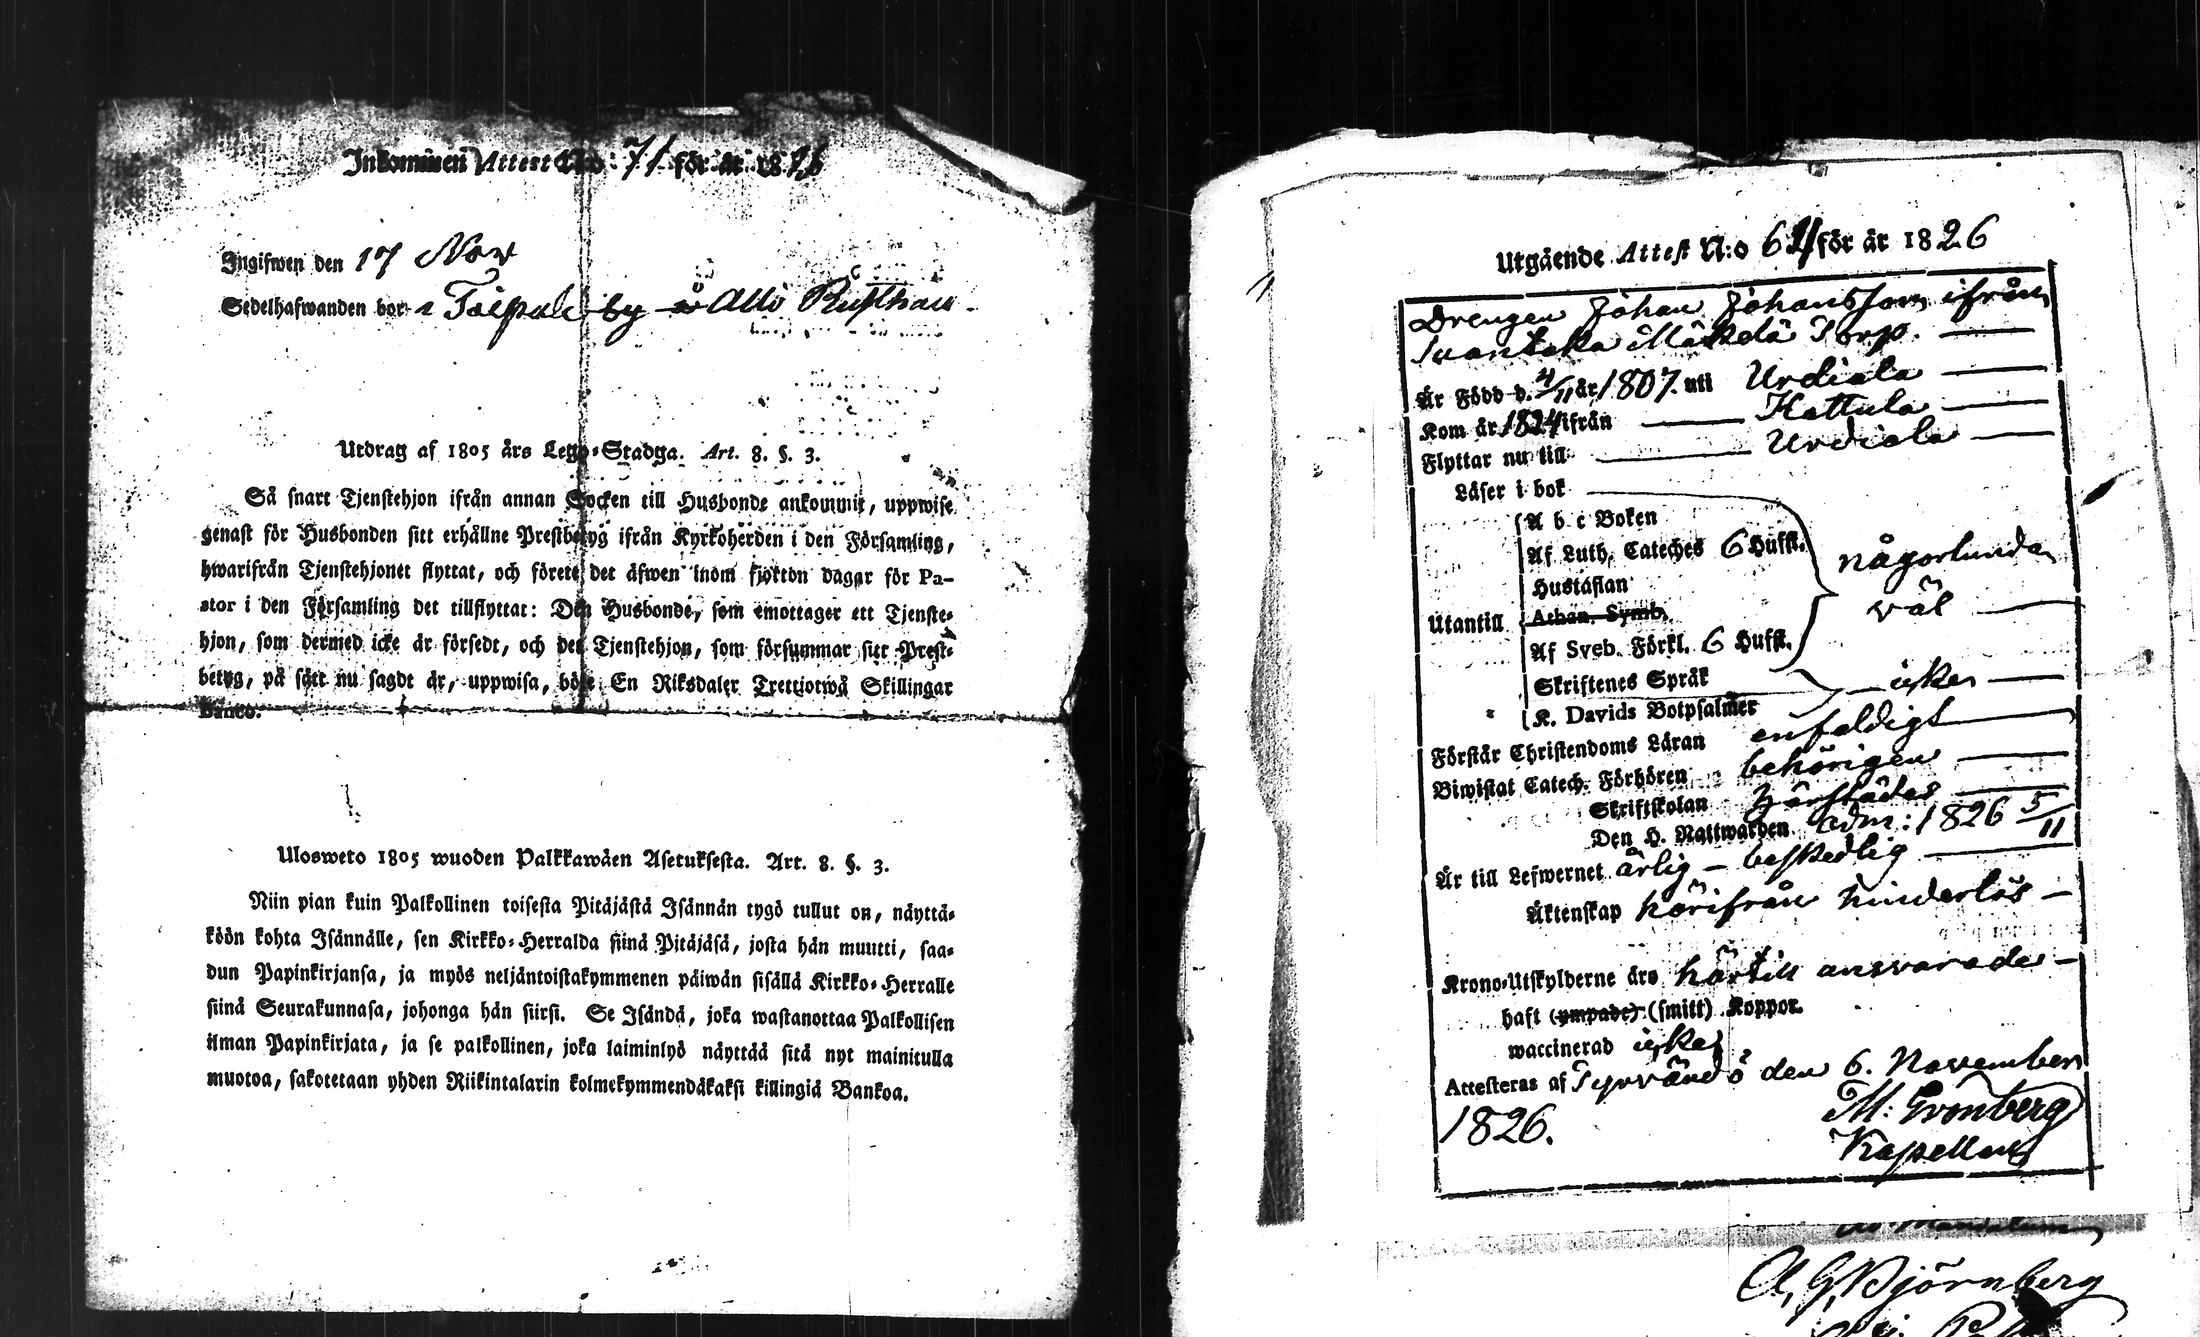 Inkommen Attest No: 71 för år 1826
Ingifwen den 17 Nov
Sedelhafwanden bor i by å Allo Rusthåll
Utdrag af 1805 års Lego-Stadga. Art. 8. §. 3.
Så snart Tjenstehjon ifrån annan Socken till Husbonde ankommit, uppwise
genast för Husbonden sitt erhållne Prestbetyg ifrån Kyrkoherden i den Församling,
hwarifrån Tjenstehjonet flyttat, och förete det äfwen inom fjorton dagar för Pa-
stor i den Församling det tillflyttat: Den Husbonde, som emottager ett Tjenste-
hjon, som dermed icke är försedt, och det Tjenstehjon, som försummar sitt Prest-
betyg, på sätt nu sagdt är, uppwisa, böte En Riksdaler Trettiotwå Skillingar
Banco.
Ulosweto 1805 wuoden Palkkawäen Asetuksesta. Art. 8. §. 3.
Niin pian kuin Palkollinen toisesta Pitäjästä Isännän tygö tullut on, näyttä-
köön kohta Isännälle, sen Kirkko-Herralda siinä Pitäjäsä, josta hän muutti, saa-
dun Papinkirjansa, ja myös neljäntoistakymmenen päiwän sisällä Kirkko-Herralle
siinä Seurakunnasa, johonga hän siirsi. Se Isändä, joka wastanottaa Palkollisen
ilman Papinkirjata, ja se palkollinen, joka laiminlyö näyttää sitä nyt mainitulla
muotoa, sakotetaan yhden Riikintalarin kolmekymmendäkaksi killingiä Bankoa.
Utgående Attest N:o 64 för år 1826
Drengen Johan Johansson ifrån
Svantaka Mäkelä Torp.
Är Född d. 4/11 år 1807. uti Urdiala
Kom år 1824 ifrån Hattula
Flyttar nu till Urdiala
Läser i bok
A b c Boken
Af Luth. Cateches 6 Hufst.
någorlunda
Hustaflan
väl
Utantill
Athan. Symb.
Af Sveb. Förkl. 6 Hufst.
Skriftenes Språk
icke
K. Davids Botpsalmer
Förstår Christendoms Läran enfaldigt
Biwistat Catech. Förhören behörigen
Skriftskolan härstädes
Den H. Nattwarden adm: 1826 5/11
Är till Lefwernet ärlig - beskedlig
Äktenskap härifrån hinderlös
Krono-Utskylderne äro härtill ansvarade
haft (ympade) (smitt) Koppor.
waccinerad icke
Attesteras af Tyrvändö den 6. November
1826.
M: Gronberg
Kapellan
A. G. Björnberg